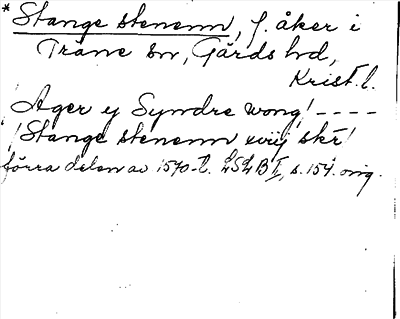 * Stange stenenn, f. åker i
Träne sn, Gärds hd,
Krist. l.
Ager ij Syndre wong! ----
! Stange stenenn xviij skr!
förra delen av 1570-t. LSLB I, s. 154. orig.